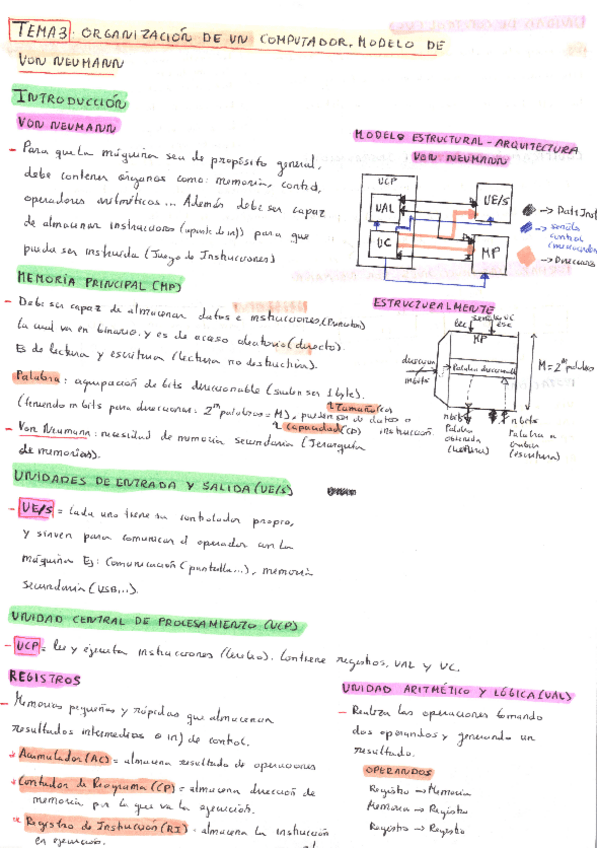 TEMA 3: ORGANIZACIÓN DE UN COMPUTADOR. MODELO DE
VON NEUMANN
INTRODUCCIÓN
VON NEUMANN
- Para que la máquina sea de propósito general,
debe contener órganos como: memoria, control,
operadores aritméticos... Además debe ser capaz
de almacenar instrucciones para que
pueda ser instruida (Juego de Instrucciones)
MODELO ESTRUCTURAL - ARQUITECTURA
VON NEUMANN
UCP
UAL
UC
UE/S
MP
→ Dat/Inst
→ señales
control
→ Direcciones
MEMORIA PRINCIPAL (MP)
- Debe ser capaz de almacenar datos e instrucciones
la cual va en binario y es de acceso aleatorio (directo).
Es de lectura y escritura (lectura no destructiva).
Palabra: agrupación de bits direccionable (suelen ser 1 byte).
(teniendo m bits para direccionar: 2^m palabras = M), pueden ser de datos o
instrucción
Tamaño
capacidad
- Von Neumann: necesidad de memoria secundaria (Jerarquía
de memorias).
ESTRUCTURALMENTE
lec
esc
MP
dirección
m bits
Palabra direccionada
M = 2^m palabras
n bits
Palabra
obtenida
(lectura)
n bits
Palabra a
escribir
(escritura)
UNIDADES DE ENTRADA Y SALIDA (UE/S)
- UE/S = Cada uno tiene su controlador propio,
y sirven para comunicar el operador con la
máquina Ej: Comunicación (pantalla...), memoria
secundaria (USB...).
UNIDAD CENTRAL DE PROCESAMIENTO (UCP)
- UCP = lee y ejecuta instrucciones. Contiene registros, UAL y UC.
REGISTROS
- Memorias pequeñas y rápidas que almacenan
resultados intermedios o inf de control.
* Acumulador (AC) = almacena resultado de operaciones
* Contador de Programa (CP) = almacena dirección de
memoria por la que va la ejecución.
* Registro de Instrucción (RI) - almacena la instrucción
en ejecución.
UNIDAD ARITMÉTICO Y LÓGICA (UAL)
- Realiza las operaciones tomando
dos operandos y generando un
resultado.
OPERANDOS
Registro → Memoria
Memoria → Registro
Registro → Registro